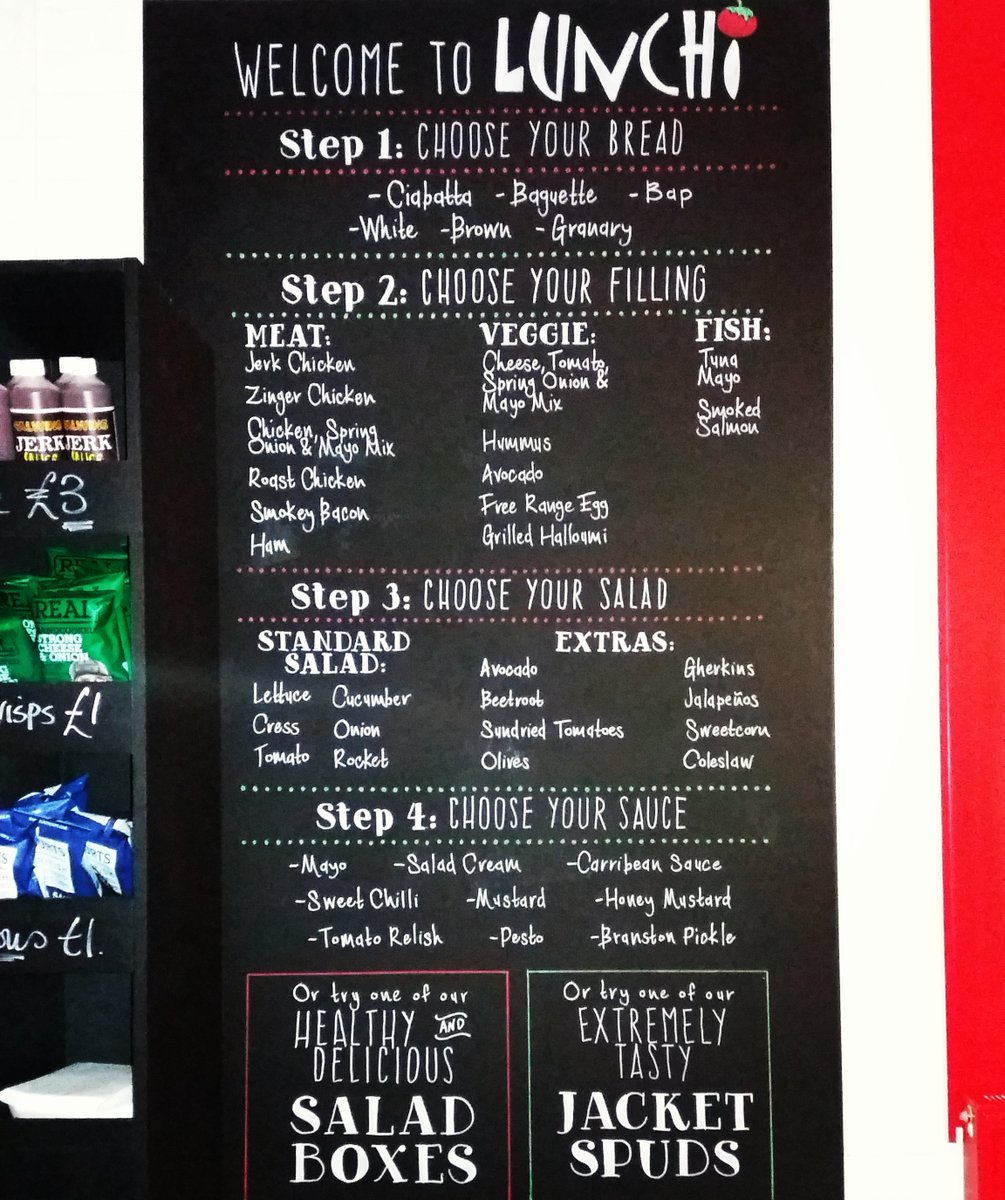 WELCOME TO LUNCHi
Step 1: CHOOSE YOUR BREAD
- Ciabatta - Baguette - Bap
- White - Brown - Granary
Step 2: CHOOSE YOUR FILLING
MEAT:
Jerk Chicken
Zinger Chicken
Chicken, Spring
Onion & Mayo Mix
Roast Chicken
Smokey Bacon
Ham
VEGGIE:
Cheese, Tomato,
Spring Onion &
Mayo Mix
Hummus
Avocado
Free Range Egg
Grilled Halloumi
FISH:
Tuna
Mayo
Smoked
Salmon
Step 3: CHOOSE YOUR SALAD
STANDARD
SALAD:
Lettuce Cucumber
Cress Onion
Tomato Rocket
EXTRAS:
Avocado Gherkins
Beetroot Jalapeños
Sundried Tomatoes Sweetcorn
Olives Coleslaw
Step 4: CHOOSE YOUR SAUCE
- Mayo - Salad Cream - Carribean Sauce
- Sweet Chilli - Mustard - Honey Mustard
- Tomato Relish - Pesto - Branston Pickle
Or try one of our
HEALTHY AND
DELICIOUS
SALAD
BOXES
Or try one of our
EXTREMELY
TASTY
JACKET
SPUDS
JERK JERK
£3
REAL
STRONG
CHEESE
& ONION
risps £1
£1.